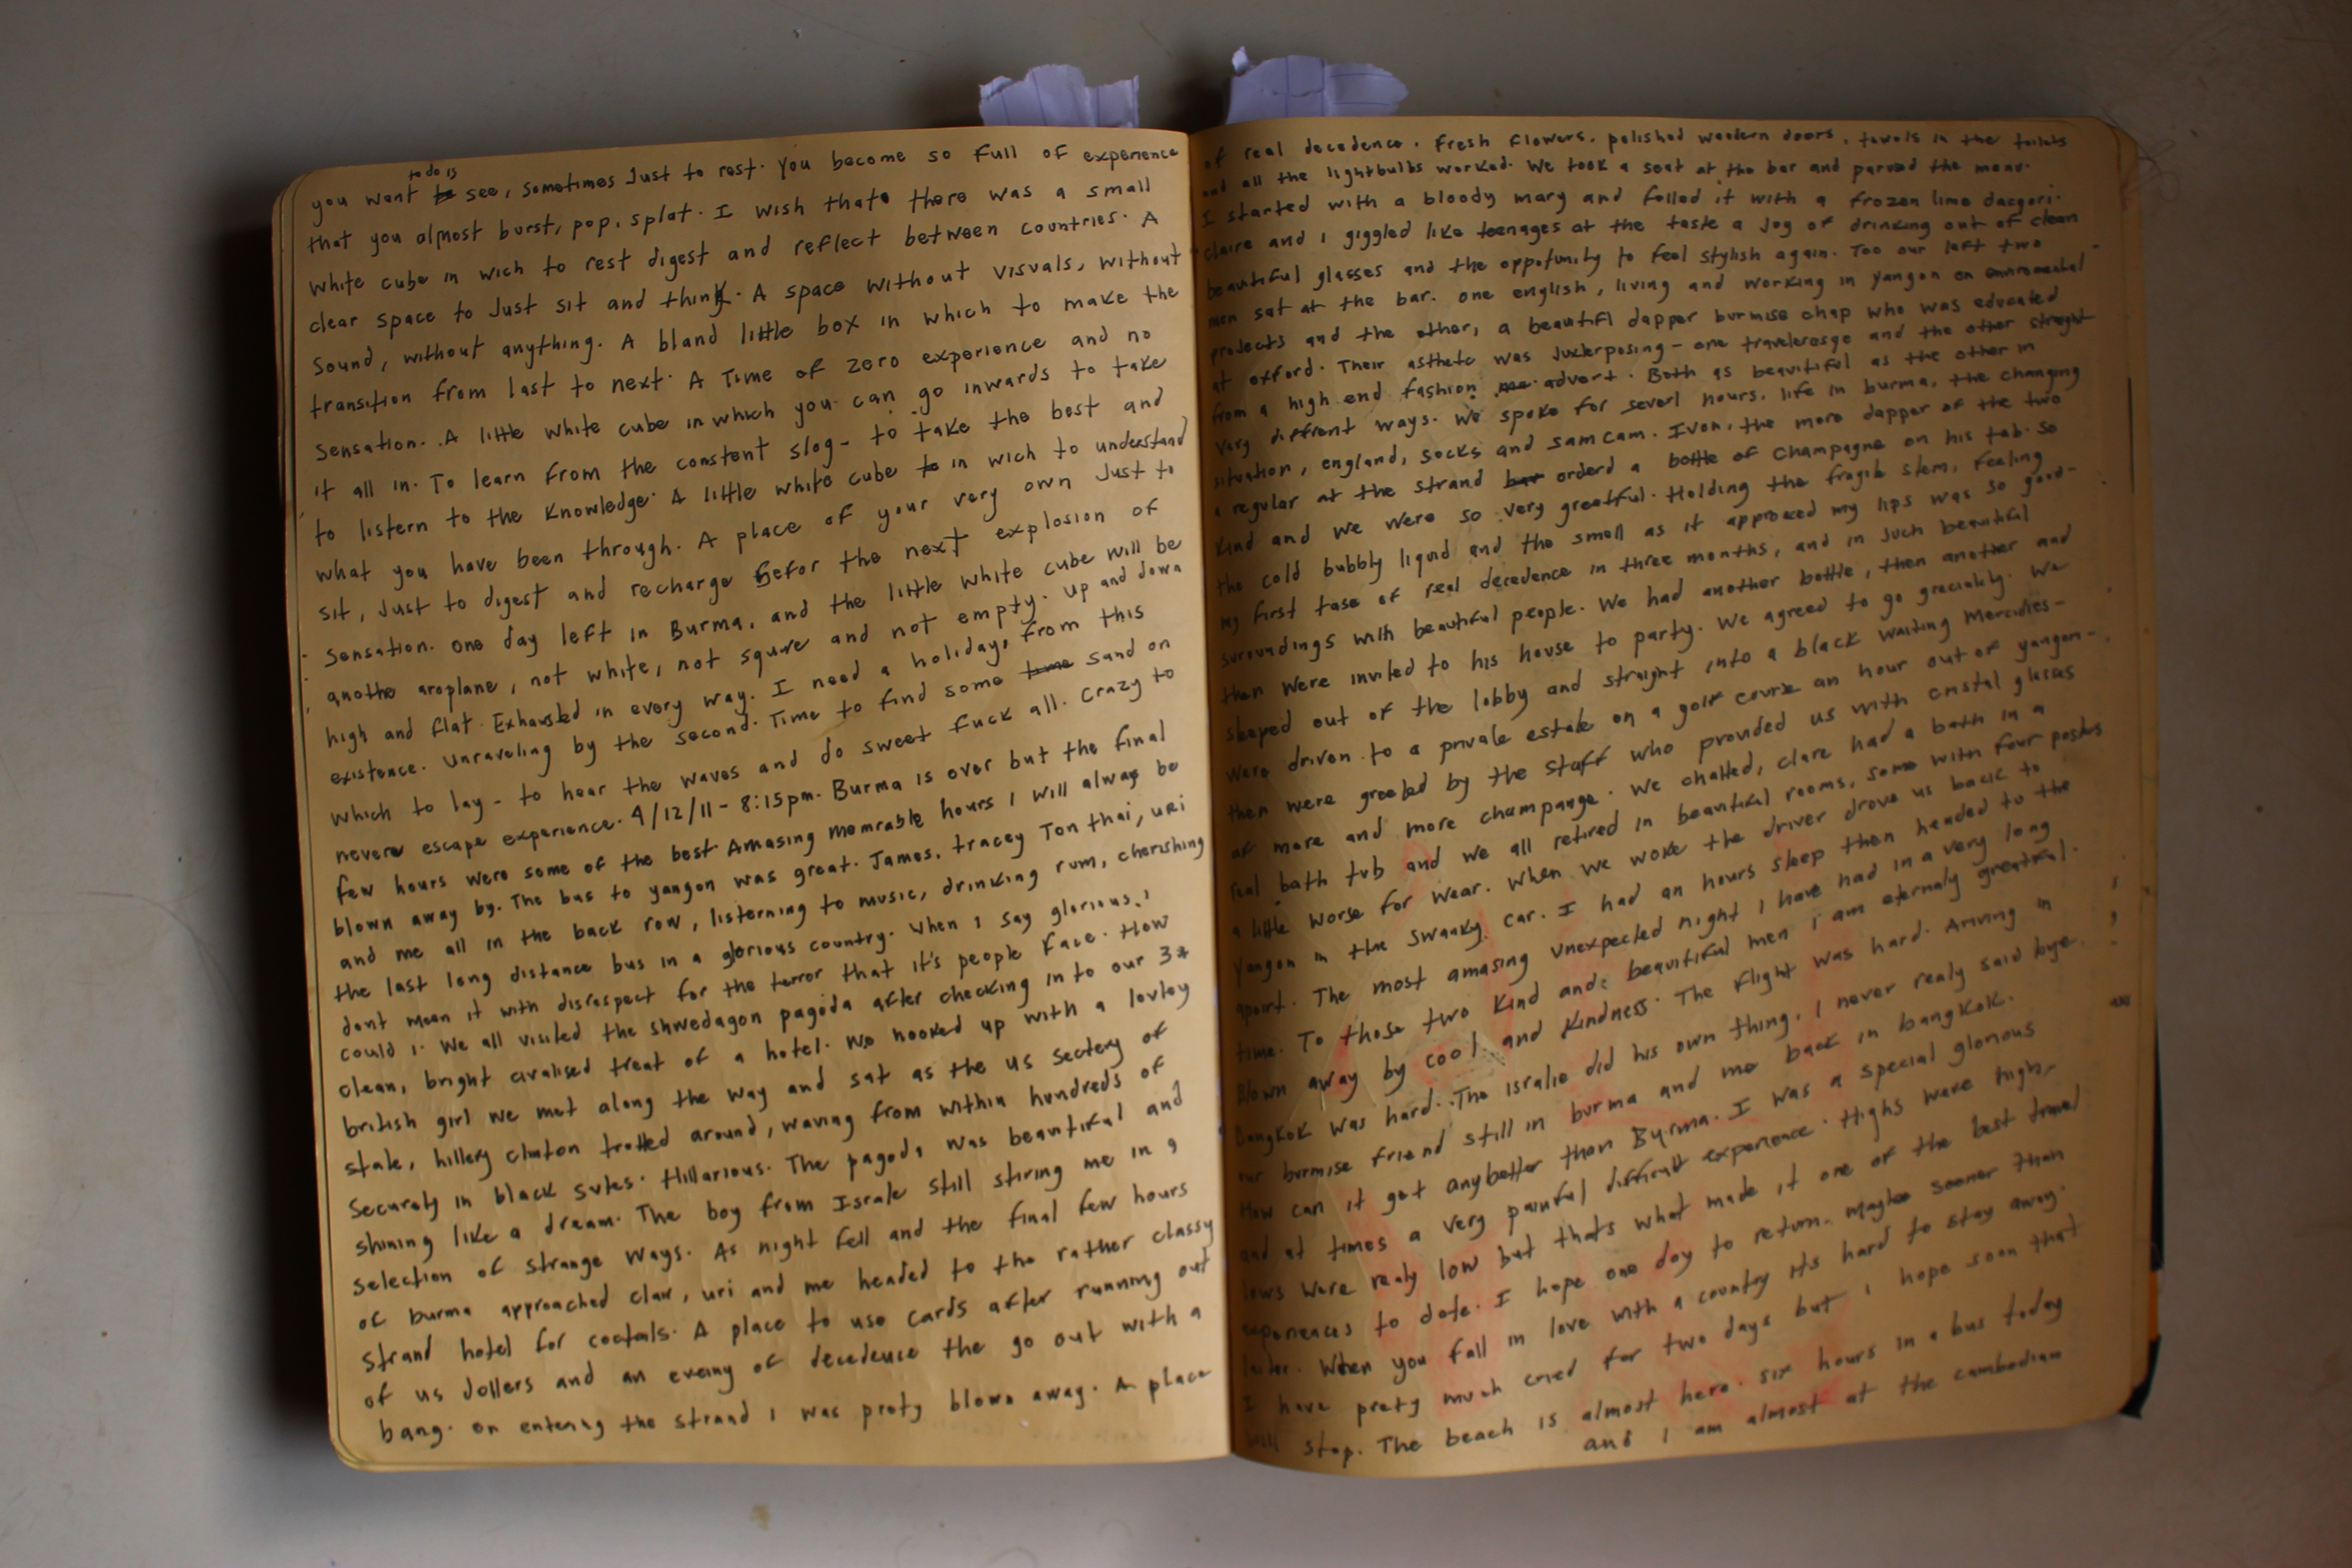 to do is
you want to see, sometimes Just to rest. You become so full of experience
that you almost burst, pop, splat. I wish thate there was a small
white cube in wich to rest digest and reflect between countries. A
clear space to Just sit and think. A space without visuals, without
sound, without anything. A bland little box in which to make the
transition from last to next. A Time of zero experience and no
sensation. A little white cube in which you can go inwards to take
it all in. To learn from the constent slog - to take the best and
to listern to the knowledge. A little white cube to in wich to understand
what you have been through. A place of your very own Just to
sit, Just to digest and recharge befor the next explosion of
sensation. one day left in Burma, and the little white cube will be
anothe aroplane, not white, not square and not empty. up and down
high and flat. Exhausted in every way. I need a holiday, from this
existence. unraveling by the second. Time to find some time sand on
which to lay - to hear the waves and do sweet fuck all. crazy to
nevere escape experience. 4/12/11 - 8:15pm. Burma is over but the final
few hours were some of the best Amasing momrable hours I will always be
blown away by. The bus to yangon was great. James, tracey Ton thai, uri
and me all in the back row, listerning to music, drinking rum, cherishing
the last long distance bus in a glorious country. When I say glorious, I
dont mean it with disrespect for the terror that it's people face. How
could I. We all visited the shwedagon pagoda after checking in to our 3*
clean, bright civalised treat of a hotel. We hooked up with a lovley
british girl we met along the way and sat as the us sectery of
state, hillery clinton trotted around, waving from within hundreds of
securety in black sutes. Hillarious. The pagoda was beautiful and
shining like a dream. The boy from Israle still stiring me in a
selection of strange ways. As night fell and the final few hours
of burma approached clare, uri and me headed to the rather classy
strand hotel for coctails. A place to use cards after running out
of us dollers and an evening of decedence the go out with a
bang. on entering the strand I was prety blown away. A place
of real decedence. Fresh flowers, polished wooden doors, towels in the toilets
and all the lightbulbs worked. We took a seat at the bar and parused the menu.
I started with a bloody mary and folled it with a frozen lime dacqeri.
Claire and I giggled like teenages at the taste a Joy of drinking out of clean
beautiful glasses and the oppotunity to feel stylish again. Too our left two
men sat at the bar. one english, living and working in yangon on enviromental
projects and the other, a beautifl dapper burmise chap who was educated
at oxford. Their asthete was Juxterposing - one traveleresqe and the other streght
from a high end fashion advert. Both as beautiful as the other in
very diffrent ways. We spoke for severl hours. life in burma, the changing
situation, england, socks and sam cam. Ivon, the more dapper of the two
a regular at the strand bar orderd a bottle of Champagne on his tab. So
kind and we were so very greatful. Holding the fragile stem, feeling
the cold bubbly liquid and the smell as it approced my lips was so good -
my first tase of real decedence in three months, and in such beautiful
suroundings with beautiful people. We had another bottle, then another and
then were invited to his house to party. We agreed to go graciality. We
sleeped out of the lobby and straight into a black waiting Mercidies -
were driven to a private estate on a golf course an hour out of yangon -
then were greeted by the staff who provided us with cristal glasses
of more and more champange. We chatted, clare had a bath in a
real bath tub and we all retired in beautiful rooms, some with four postes
a little worse for wear. When we woke the driver drove us back to
yangon in the swanky car. I had an hours sleep then headed to the
aport. The most amasing unexpected night I have had in a very long
time. To those two kind and beautiful men I am eternaly greatful.
Blown away by cool and kindness. The flight was hard. Ariving in
Bangkok was hard. The isralie did his own thing. I never realy said bye.
our burmise friend still in burma and me back in bangkok.
How can it get anybetter than Burma. I was a special glorious
and at times a very painful difficult experience. Highs ware high,
lows were realy low but thats what made it one of the best travel
experiences to date. I hope one day to return. maybe sooner than
later. When you fall in love with a country its hard to stay away.
I have prety much cried for two days but I hope soon that
will stop. The beach is almost here. six hours in a bus today
and I am almost at the cambodian